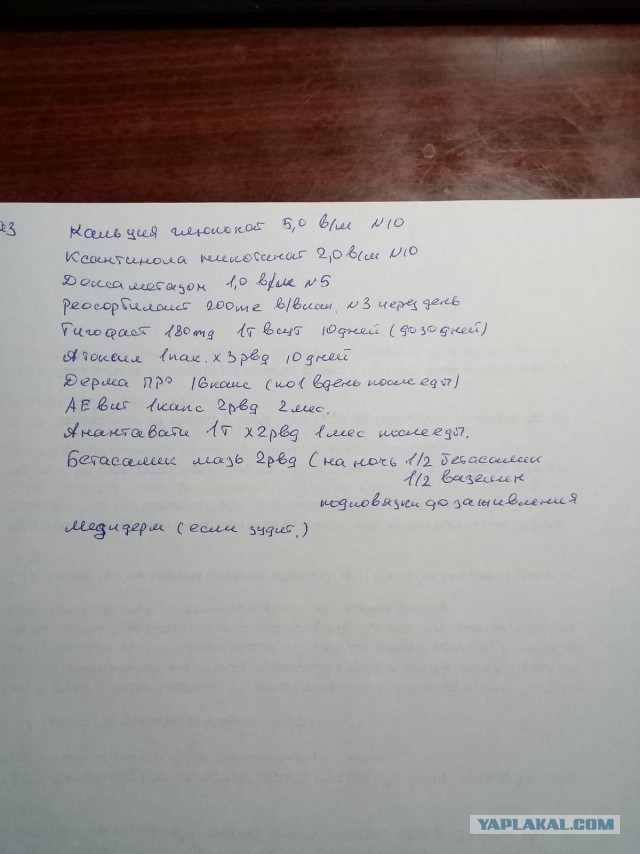 аз
Кальция глюконат 5,0 в/м N10
Ксантинола никотинат 2,0 в/м N10
Дексаметазон 1,0 в/м N5
реосорбилакт 200 в/вкап. N3 через день
Тигофаст 180mg 1т всут 10дней (до 30дней)
Атоксил 1пак. х 3рвд 10 дней
Дерма ПРО 1 капс (по1 вдень после еды)
АЕвит 1капс 2рвд 2мес.
Анантавати 1Т х2рвд 1мес после еды.
Бетасалик мазь 2рвд (на ночь 1/2 бетасалик
1/2 вазелин
подповязки до заживления
Медидерм (если зудит.)
YAPLAKAL.COM